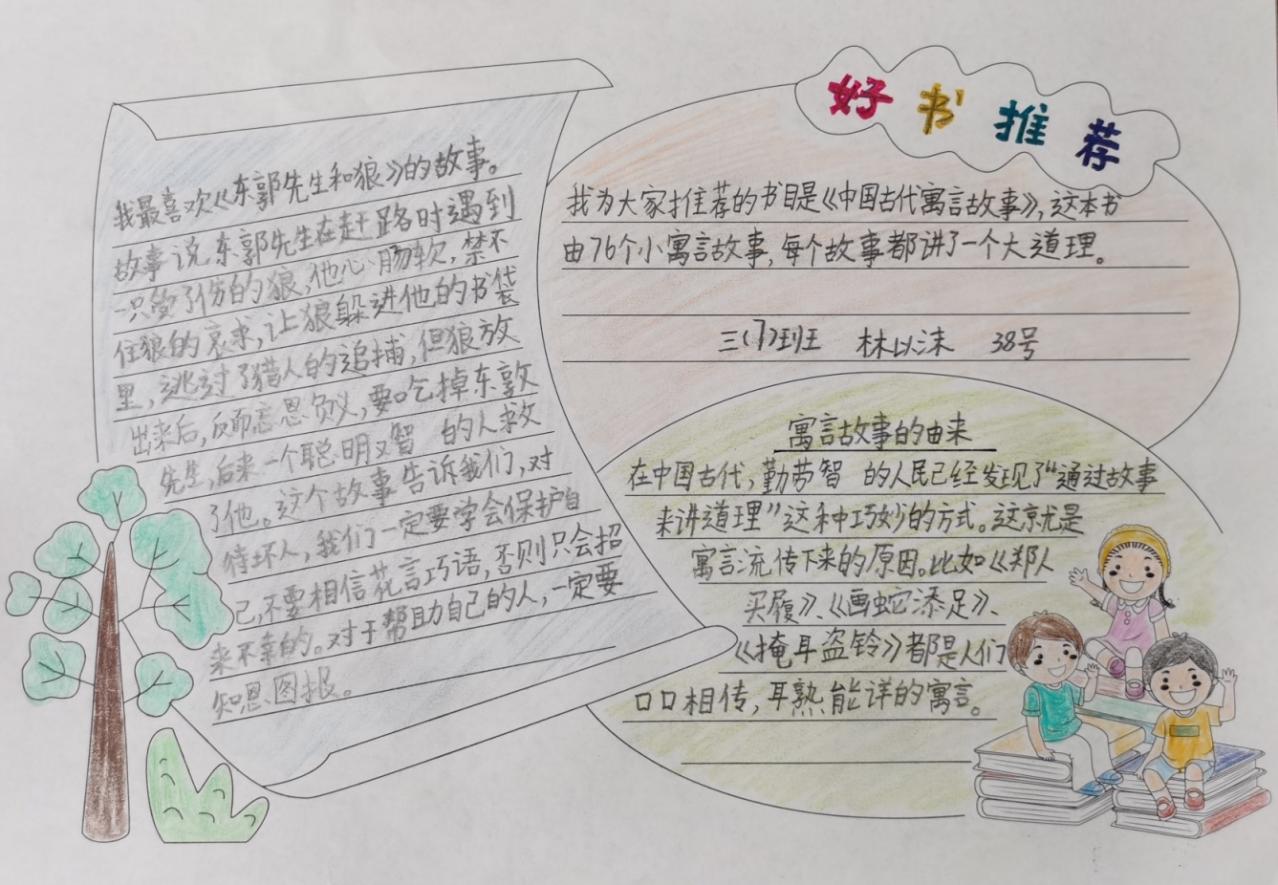 好书推荐
我最喜欢《东郭先生和狼》的故事。
故事说,东郭先生在赶路时遇到
一只受了伤的狼,他心肠软,禁不
住狼的哀求,让狼躲进他的书袋
里,逃过了猎人的追捕,但狼放
出来后,反而忘恩负义,要吃掉东敦
先生,后来一个聪明又智 的人救
了他。这个故事告诉我们,对
待坏人,我们一定要学会保护自
己,不要相信花言巧语,否则只会招
来不幸的。对于帮助自己的人,一定要
知恩图报。
我为大家推荐的书目是《中国古代寓言故事》,这本书
由76个小寓言故事,每个故事都讲了一个大道理。
三(7)班 林以沫 38号
寓言故事的由来
在中国古代,勤劳智 的人民已经发现了“通过故事
来讲道理”这种巧妙的方式。这就是
寓言流传下来的原因。比如《郑人
买履》、《画蛇添足》、
《掩耳盗铃》都是人们
口口相传,耳熟能详的寓言。